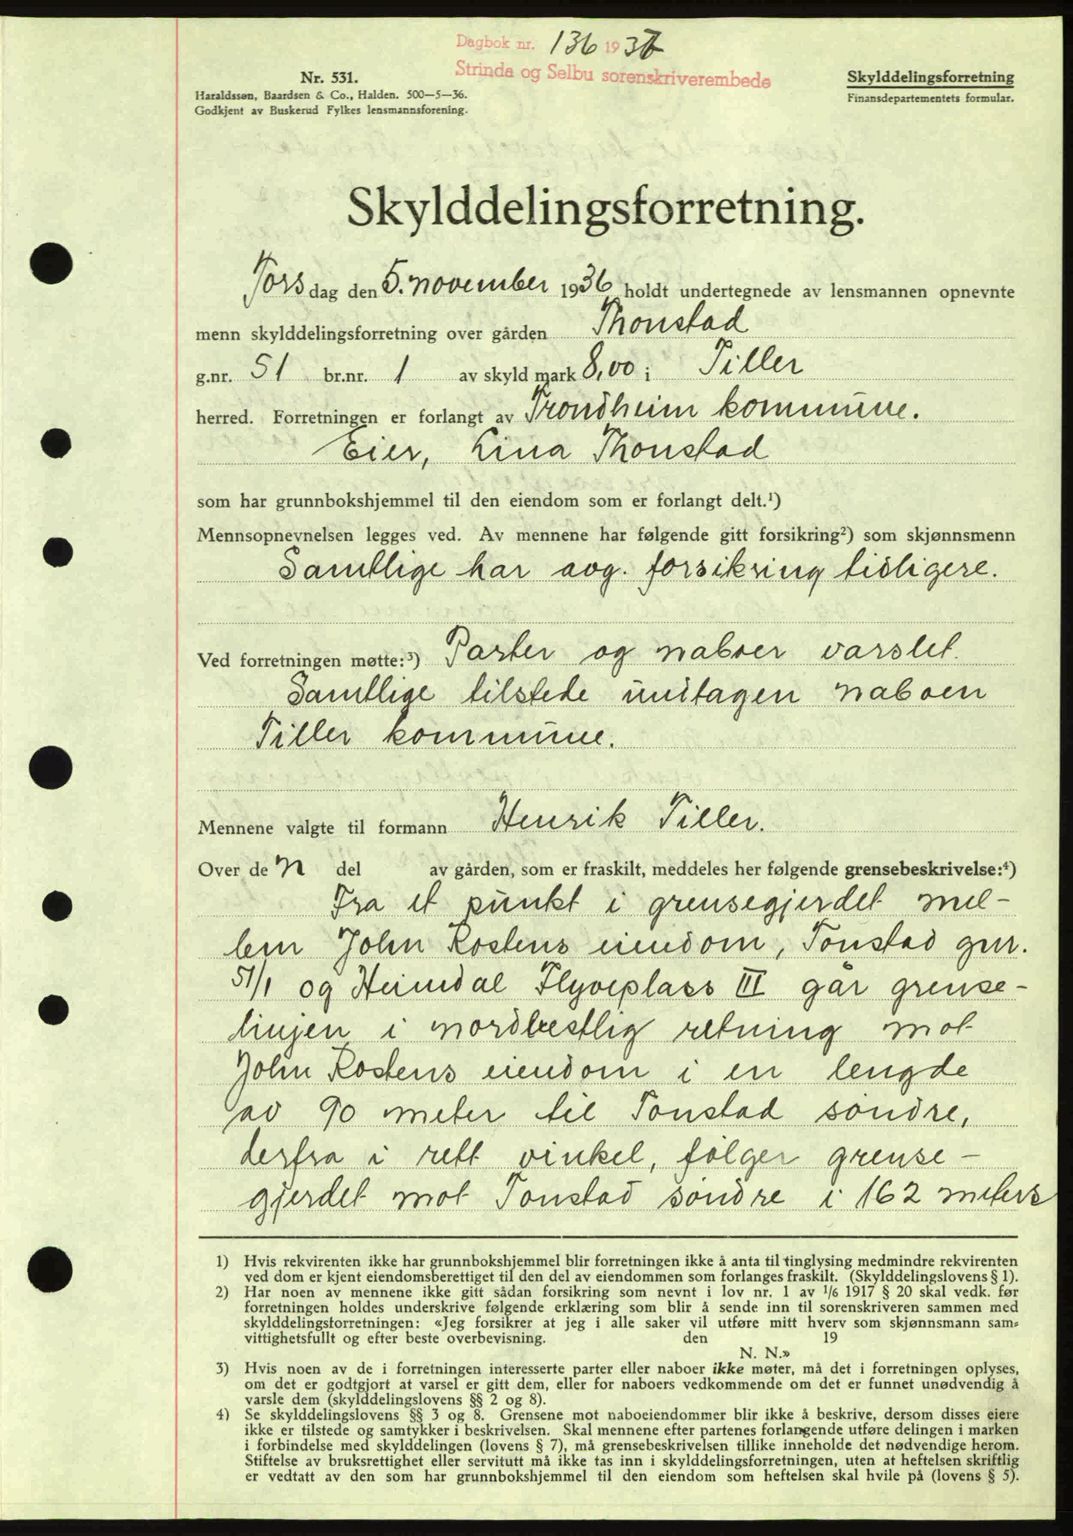 Dagbok nr. 136 1937
Strinda og Selbu sorenskriverembede
Nr. 531.
Haraldssøn, Baardsen & Co., Halden. 500—5—36.
Godkjent av Buskerud Fylkes lensmannsforening.
Skylddelingsforretning
Finansdepartementets formular.
Skylddelingsforretning.
Torsdag den 5. november 1936 holdt undertegnede av lensmannen opnevnte
menn skylddelingsforretning over gården Thonstad
g.nr. 51 br.nr. 1 av skyld mark 8,00 i Tiller
herred. Forretningen er forlangt av Trondheim kommune.
Eier, Lina Thonstad
som har grunnbokshjemmel til den eiendom som er forlangt delt.¹)
Mennsopnevnelsen legges ved. Av mennene har følgende gitt forsikring²) som skjønnsmenn
Samtlige har avg. forsikring tidligere.
Ved forretningen møtte:³) Parter og naboer varslet.
Samtlige tilstede undtagen naboen
Tiller kommune.
Mennene valgte til formann Henrik Tiller.
Over den del av gården, som er fraskilt, meddeles her følgende grensebeskrivelse:⁴)
Fra et punkt i grensegjerdet mel-
lem John Rostens eiendom, Tonstad gnr.
51/1 og Heimdal Flyveplass III går grense-
linjen i nordvestlig retning mot
John Rostens eiendom i en lengde
av 90 meter til Tonstad søndre,
derfra i rett vinkel, følger grense-
gjerdet mot Tonstad søndre i 162 meters
1) Hvis rekvirenten ikke har grunnbokshjemmel blir forretningen ikke å anta til tinglysing medmindre rekvirenten
ved dom er kjent eiendomsberettiget til den del av eiendommen som forlanges fraskilt. (Skylddelingslovens § 1).
2) Har noen av mennene ikke gitt sådan forsikring som nevnt i lov nr. 1 av 1/6 1917 § 20 skal vedk. før
forretningen holdes underskrive følgende erklæring som blir å sende inn til sorenskriveren sammen med
skylddelingsforretningen: «Jeg forsikrer at jeg i alle saker vil utføre mitt hverv som skjønnsmann sam-
vittighetsfullt og efter beste overbevisning. den 19
N. N.»
3) Hvis noen av de i forretningen interesserte parter eller naboer ikke møter, må det i forretningen oplyses,
om det er godtgjort at varsel er gitt dem, eller for naboers vedkommende om det er funnet unødvendig å
varsle dem (skylddelingslovens §§ 2 og 8).
4) Se skylddelingslovens §§ 3 og 8. Grensene mot naboeiendommer blir ikke å beskrive, dersom disses eiere
ikke er tilstede og samtykker i beskrivelsen. Skal mennene efter partenes forlangende utføre delingen i marken
i forbindelse med skylddelingen (lovens § 7), må grensebeskrivelsen tillike inneholde det nødvendige herom.
Stiftelse av bruksrettighet eller servitutt må ikke tas inn i skylddelingsforretningen, uten at heftelsen skriftlig
er vedtatt av den som har grunnbokshjemmel til den eiendom som heftelsen skal hvile på (lovens § 5).